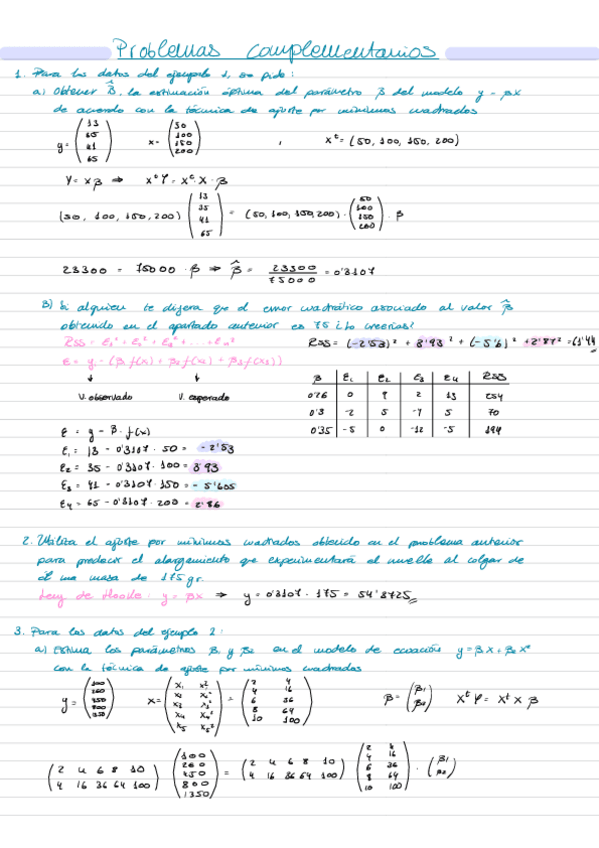 Problemas complementarios
1. Para los datos del ejemplo 1, se pide:
a) Obtener β̂, la estimación óptima del parámetro β del modelo y = βx
de acuerdo con la técnica de ajuste por mínimos cuadrados
y = (13 65 41 65) x = (50 100 150 200) , xᵗ = (50, 100, 150, 200)
Y = Xβ ⇒ XᵗY = Xᵗ·X·β
(50, 100, 150, 200) (13 35 41 65) = (50, 100, 150, 200) · (50 100 150 200) · β
23300 = 75000 · β ⇒ β̂ = 23300/75000 = 0'3107
B) Si alguien te dijera que el error cuadrático asociado al valor β̂
obtenido en el apartado anterior es 75 ¿lo creerías?
RSS = ε₁² + ε₂² + ε₃² + ... + εₙ² RSS = (-2'53)² + 3'93² + (-5'6)² + 2'87² =
ε = y - (β₁ f(x) + β₂ f(x₂) + β₃ f(x₃))
↓ ↓
V. observado V. esperado
β ε₁ ε₂ ε₃ ε₄ RSS
0'26 0 9 2 13 254
0'3 -2 5 -4 5 70
0'35 -5 0 -12 -5 194
ε = y - β · f(x)
ε₁ = 13 - 0'3107 · 50 = -2'53
ε₂ = 35 - 0'3107 · 100 = 3'93
ε₃ = 41 - 0'3107 · 150 = -5'605
ε₄ = 65 - 0'3107 · 200 = 2'86
2. Utiliza el ajuste por mínimos cuadrados obtenido en el problema anterior
para predecir el alargamiento que experimentará el muelle al colgar de
él una masa de 175 gr.
Ley de Hooke: y = βx ⇒ y = 0'3107 · 175 = 54'3725
3. Para los datos del ejemplo 2:
a) Estima los parámetros β₁ y β₂ en el modelo de ecuación y = β₁x + β₂x²
con la técnica de ajuste por mínimos cuadrados
y = X = (x₁ x₁² x₂ x₂² x₃ x₃² x₄ x₄² x₅ x₅²) = (2 4 4 16 6 36 8 64 10 100) β = (β₁ β₂) XᵗY = XᵗXβ
(2 4 6 8 10 4 16 36 64 100) (100 260 450 800 1350) = (2 4 6 8 10 4 16 36 64 100) (2 4 4 16 6 36 8 64 10 100) · (β₁ β₂)